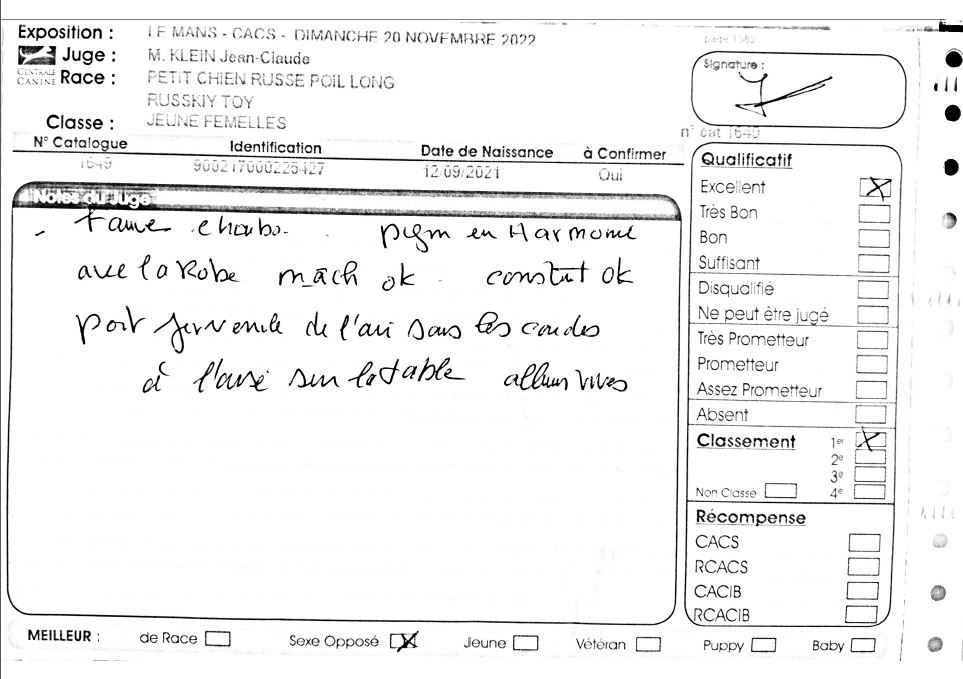 Exposition : LE MANS - CACS - DIMANCHE 20 NOVEMBRE 2022
Juge : M. KLEIN Jean-Claude
CENTRALE CANINE
Race : PETIT CHIEN RUSSE POIL LONG
RUSSKIY TOY
Classe : JEUNE FEMELLES
page 1362
Signature :
n° cat 1649
N° Catalogue Identification Date de Naissance à Confirmer
1649 900217000225427 12/09/2021 Oui
Notes du Juge
- pigm en Harmonie
avec la Robe mâch ok - constut ok
port juvenile de l'ari dans les coudes
à l'aise sur la table allures vives
Qualificatif
Excellent X
Très Bon
Bon
Suffisant
Disqualifié
Ne peut être jugé
Très Prometteur
Prometteur
Assez Prometteur
Absent
Classement 1er X
2e
3e
Non Classé 4e
Récompense
CACS
RCACS
CACIB
RCACIB
MEILLEUR : de Race Sexe Opposé X Jeune Vétéran Puppy Baby